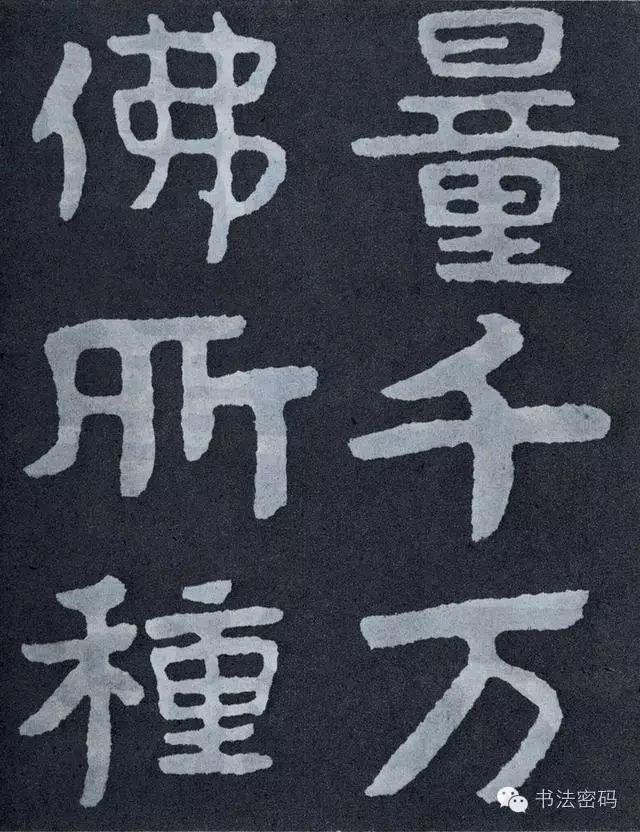 量千万
佛所種
书法密码